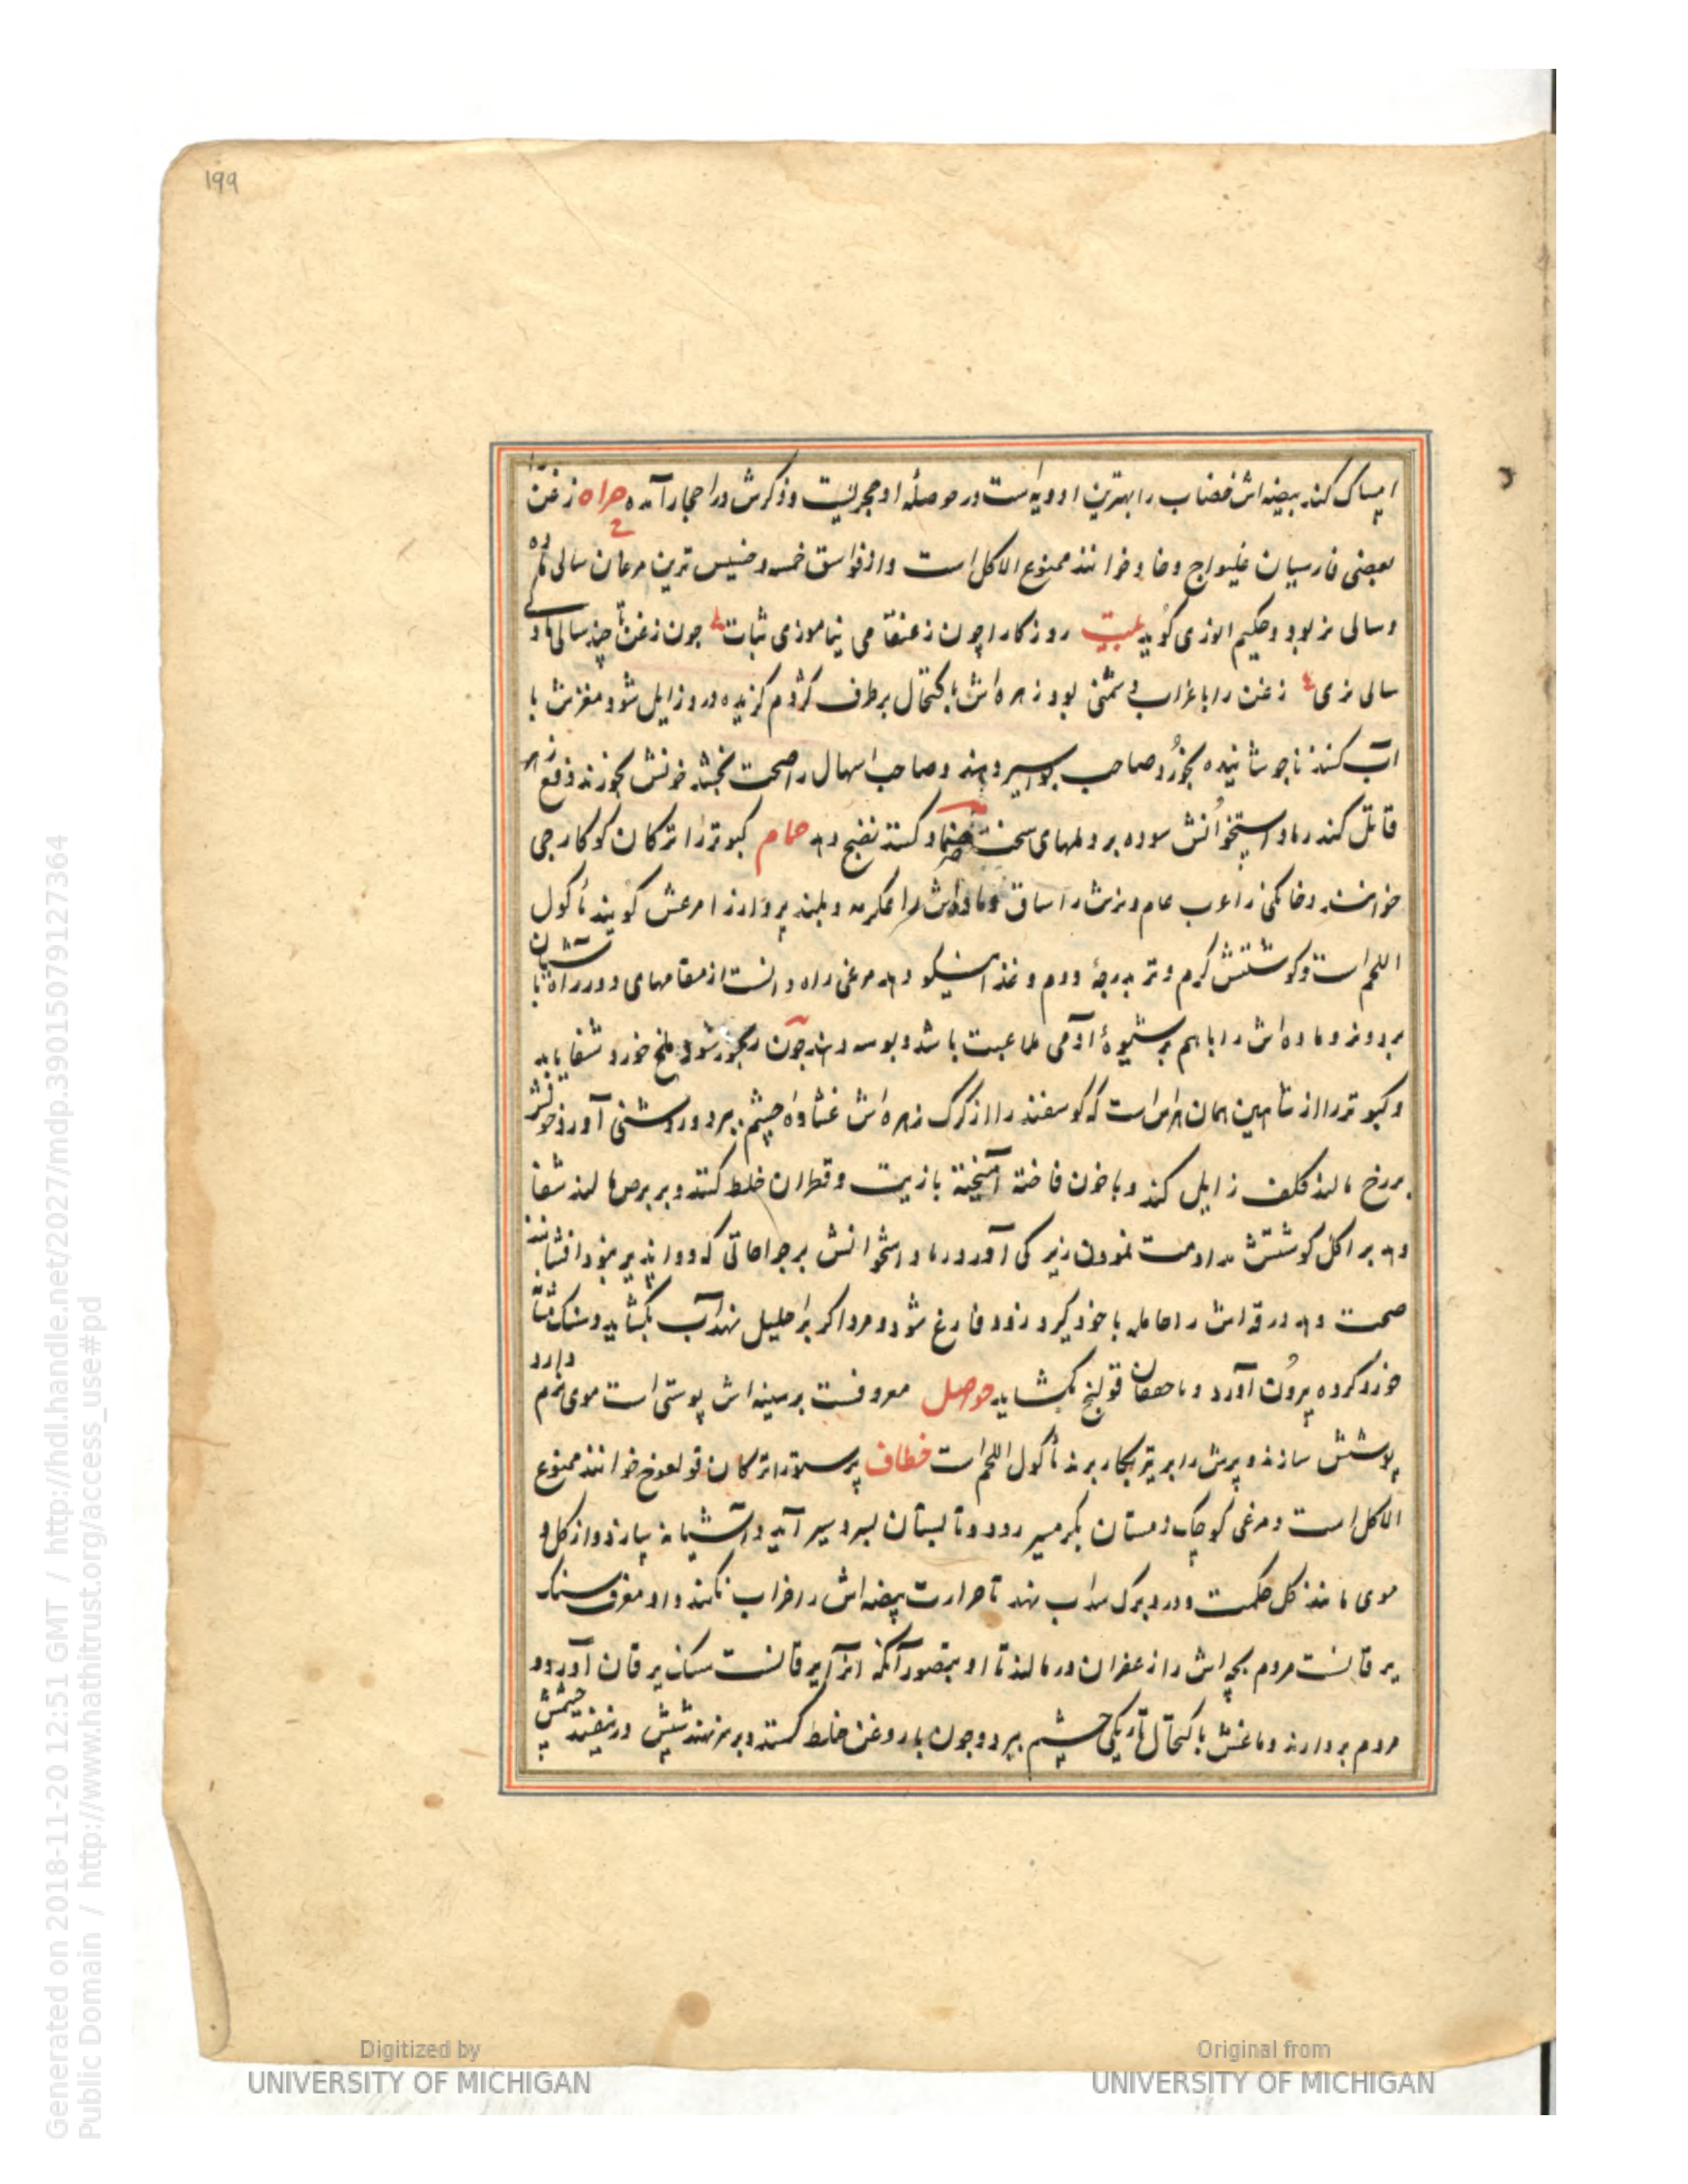 199
امساک کند بیضه‌اش خضاب را بهترین ادویه است در حوصلهٔ او حجریست و ذکرش در احجار آمده حداه زغن را
بعضی فارسیان غلیواج وخاد خوانند ممنوع الاکل است و از فواسق خمسه و خسیس ترین مرغان سالی ماده
و سالی نر بود و حکیم انوری گوید بیت روز کارا چون زعنقا می نیاموزی ثبات چون زغن تا چند سالی ماده
سالی نری زغن را با غراب دشمنی بود زهره‌اش باکتحال بر طرف کژدم گزیده درد زایل شود مغزش با
آب کندنا جوشانیده بخورد صاحب بواسیر دهند و صاحب اسهال را صحت بخشد خونش بخورند دفع زهر
قاتل کند رماد استخوانش سوده بر ورمهای سخت ضماد کنند نضج دهد حمام کبوتر را ترکان کوکارجی
خوانند و خانگی را عرب حمام و نرش را ساق و ماده‌اش را عکرمه و بلند پرواز را مرعش گویند مأکول
اللحم است و گوشتش گرم و تر بدرجهٔ دوم و غذا نیکو دهد مرغی راه دانست از مقامهای دور راه باشیان
برد و نر و ماده‌اش را با هم بر شیوهٔ آدمی ملاعبت باشد و بوسه دهند چون رنجور شود ملخ خورد شفا یابد
و کبوتر را از شاهین همان هراس است که گوسفند را از گرگ زهره‌اش غشاوهٔ چشم ببرد و روشنی آورد خونش
بر رخ مالند کلف زایل کند و با خون فاخته آمیخته با زیت و قطران خلط کنند و بر برص مالند شفا
دهد بر اکل گوشتش مداومت نمودن زیرکی آورد رماد استخوانش بر جراحاتی که دوا پذیر نبود افشانند
صحت دهد ورقه‌اش را حامله با خود گیرد زود فارغ شود و مرد اگر بر احلیل نهد آب بگشاید و سنگ مثانه
خرد کرده بیرون آورد و باحتقان قولنج بگشاید حوصل معروفست بر سینه‌اش پوستی است موی نرم دارد
پوشش سازند و پرش را بر تیر بکار برند مأکول اللحم است خطاف پرستو را ترکان قولعوج خوانند ممنوع
الاکل است و مرغی کوچک زمستان بگرمسیر رود و تابستان بسردسیر آید و آشیانه سازد و از گل و
موی مانند گل حکمت و درو برگ سداب نهد تا حرارت بیضه‌اش را خراب نکند و او معرف سنگ
یرقانست مردم بچه‌اش را زعفران در مالند تا او بتصور آنکه اثر یرقانست سنگ یرقان آورد و
مردم بردارند دماغش باکتحال تاریکی چشم ببرد و چون با روغن خلط کنند و بر سر نهند شپش در نیفتد چشمش
Digitized by
UNIVERSITY OF MICHIGAN
Original from
UNIVERSITY OF MICHIGAN
Generated on 2018-11-20 12:51 GMT / http://hdl.handle.net/2027/mdp.39015079127364
Public Domain / http://www.hathitrust.org/access_use#pd